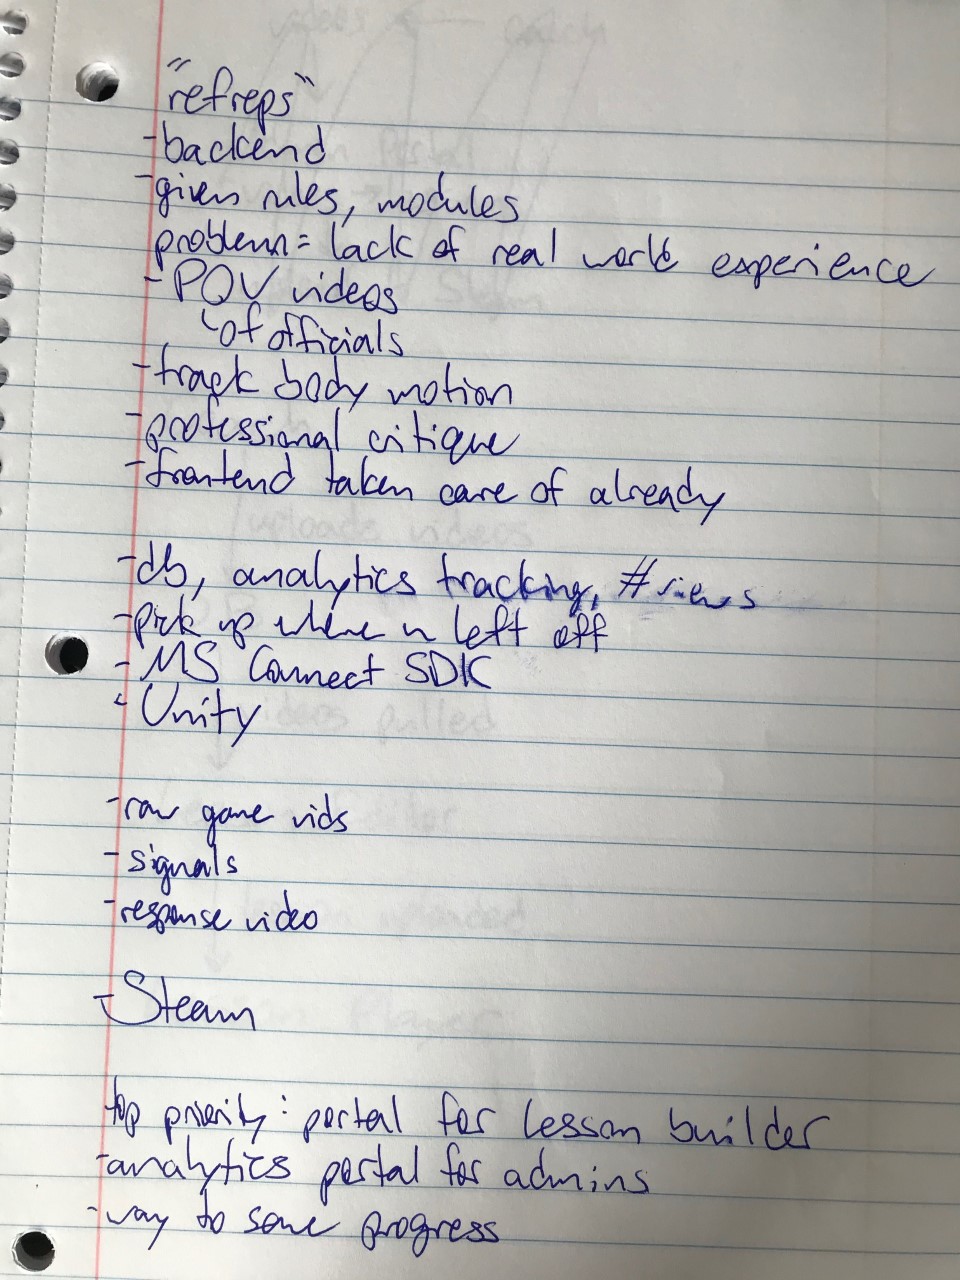 "refreps"
- backend
- given rules, modules
problem = lack of real world experience
- POV videos
of officials
- track body motion
- professional critique
- frontend taken care of already
- db, analytics tracking, # views
- pick up where u left off
- MS Connect SDK
- Unity
- raw game vids
- signals
- response video
- Steam
top priority: portal for lesson builder
- analytics portal for admins
- way to save progress